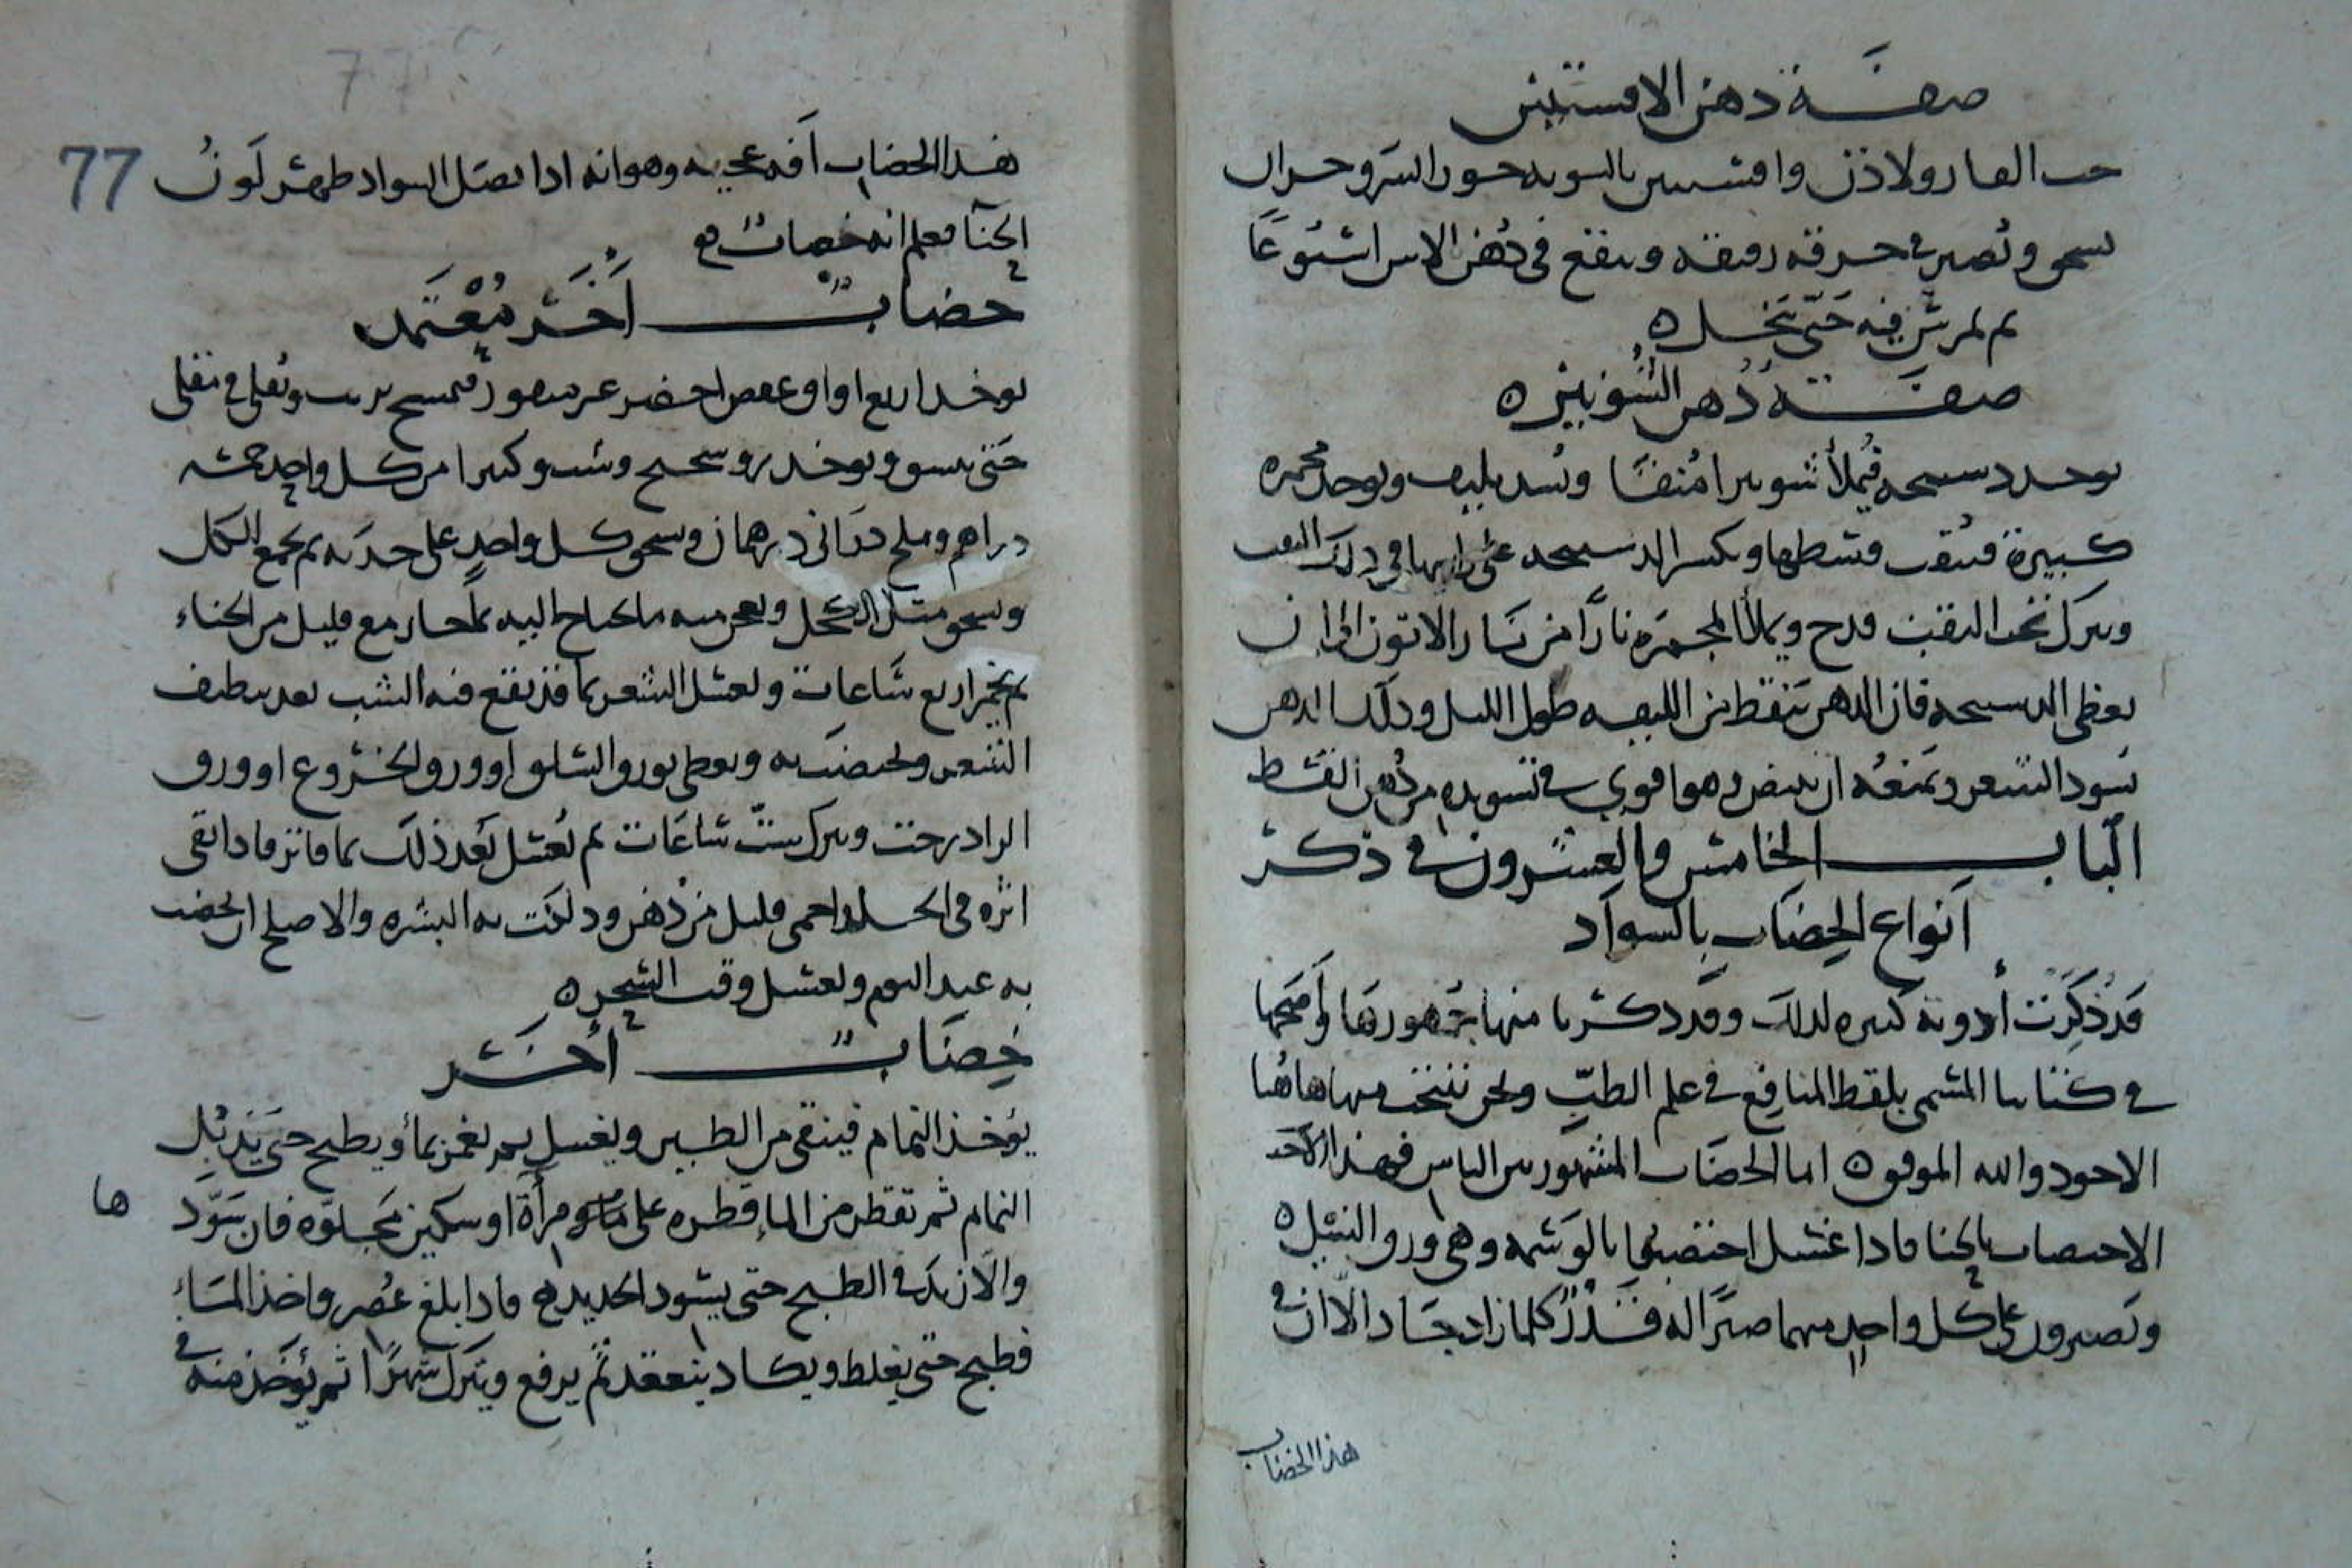 صفة دهن الافسنتين
حب الغار ولاذن وافسنتين بالسويه جوز السرو حزا
يسحق ويصير في خرقه رقيقه وينقع في دهن الاس اسبوعا
ثم يمرس فيه حتى ينحل ه
صفة دهن الشونيز ه
يوخد دستيجه فيملأ شونيزا منقا ويسد بليف ويوخد مجمره
كبيرة فيثقب وسطها ويكسر الدستيجه على راسها في ذلك الثقب
ويترك تحت الثقب قدح ويملأ المجمره نارا من نار الاتون الى ان
يغطى الدستيجه فان الدهن يتقطر من الليفه طول الليل وذلك الدهن
يسود الشعر ويمنعه ان يبيض وهو اقوي في تسويده من دهن القسط
الباب الخامس والعشرون في ذكر
انواع الخضاب بالسواد
قد ذكرت أدوية كثيره لذلك وقد ذكرنا منها جمهورها وأصحها
في كتابنا المسمى بلقط المنافع في علم الطب ونحن ننتخب منها هاهنا
الاجود والله الموفق ه اما الخضاب المشهور بين الناس فهذا الاحد
الاختصاب بالحنا فاذا غسل اختضبوا بالوسمه وهي ورق النيل ه
ويصبرون على كل واحد منهما صبرا له قدر كلما زاد جاد الا ان في
هذا الخضاب
77
هذا الخضاب آفه عجيبه وهو انه اذا نصل السواد ظهر لون
الحنا فعلم انه خضاب
خضاب آخر معتمد
يوخد اربع اواق عفص اخضر غير مثقوب فيمسح بزيت ويقلى في مقلى
حتى يسود ويوخد روسختج وشب وكثيرا من كل واحد خمسه
دراهم وملح دراني درهمان ويسحق كل واحد على حدته ثم يجمع الكل
ويسحق مثل الكحل ويعجن منه ما يحتاج اليه بماء حار مع قليل من الحناء
ثم يخمر اربع ساعات ويغسل الشعر بما قد نقع فيه الشب بعد تنظيف
الشعر ويخضب به ويغطى بورق السلق او ورق الخروع او ورق
الزادرخت ويترك ست ساعات ثم يغسل بعد ذلك بما فاتر فاذا بقى
اثره في الجلد احمى قليل من دهن ودلكت به البشره والاصلح ان يخضب
به عند النوم ويغسل وقت السحر ه
خضاب أخر
يؤخذ النمام فينقى من الطين ويغسل ثم يغمر بماء ويطبخ حتى يذبل
النمام ثم تقطر من الماء قطره على مرآة او سكين مجلوه فان سود
ها
والا زيد في الطبخ حتى يسود الحديد فاذا بلغ عصر واخذ الماء
فطبخ حتى يغلظ ويكاد ينعقد ثم يرفع ويترك شهرا ثم يؤخذ منه في